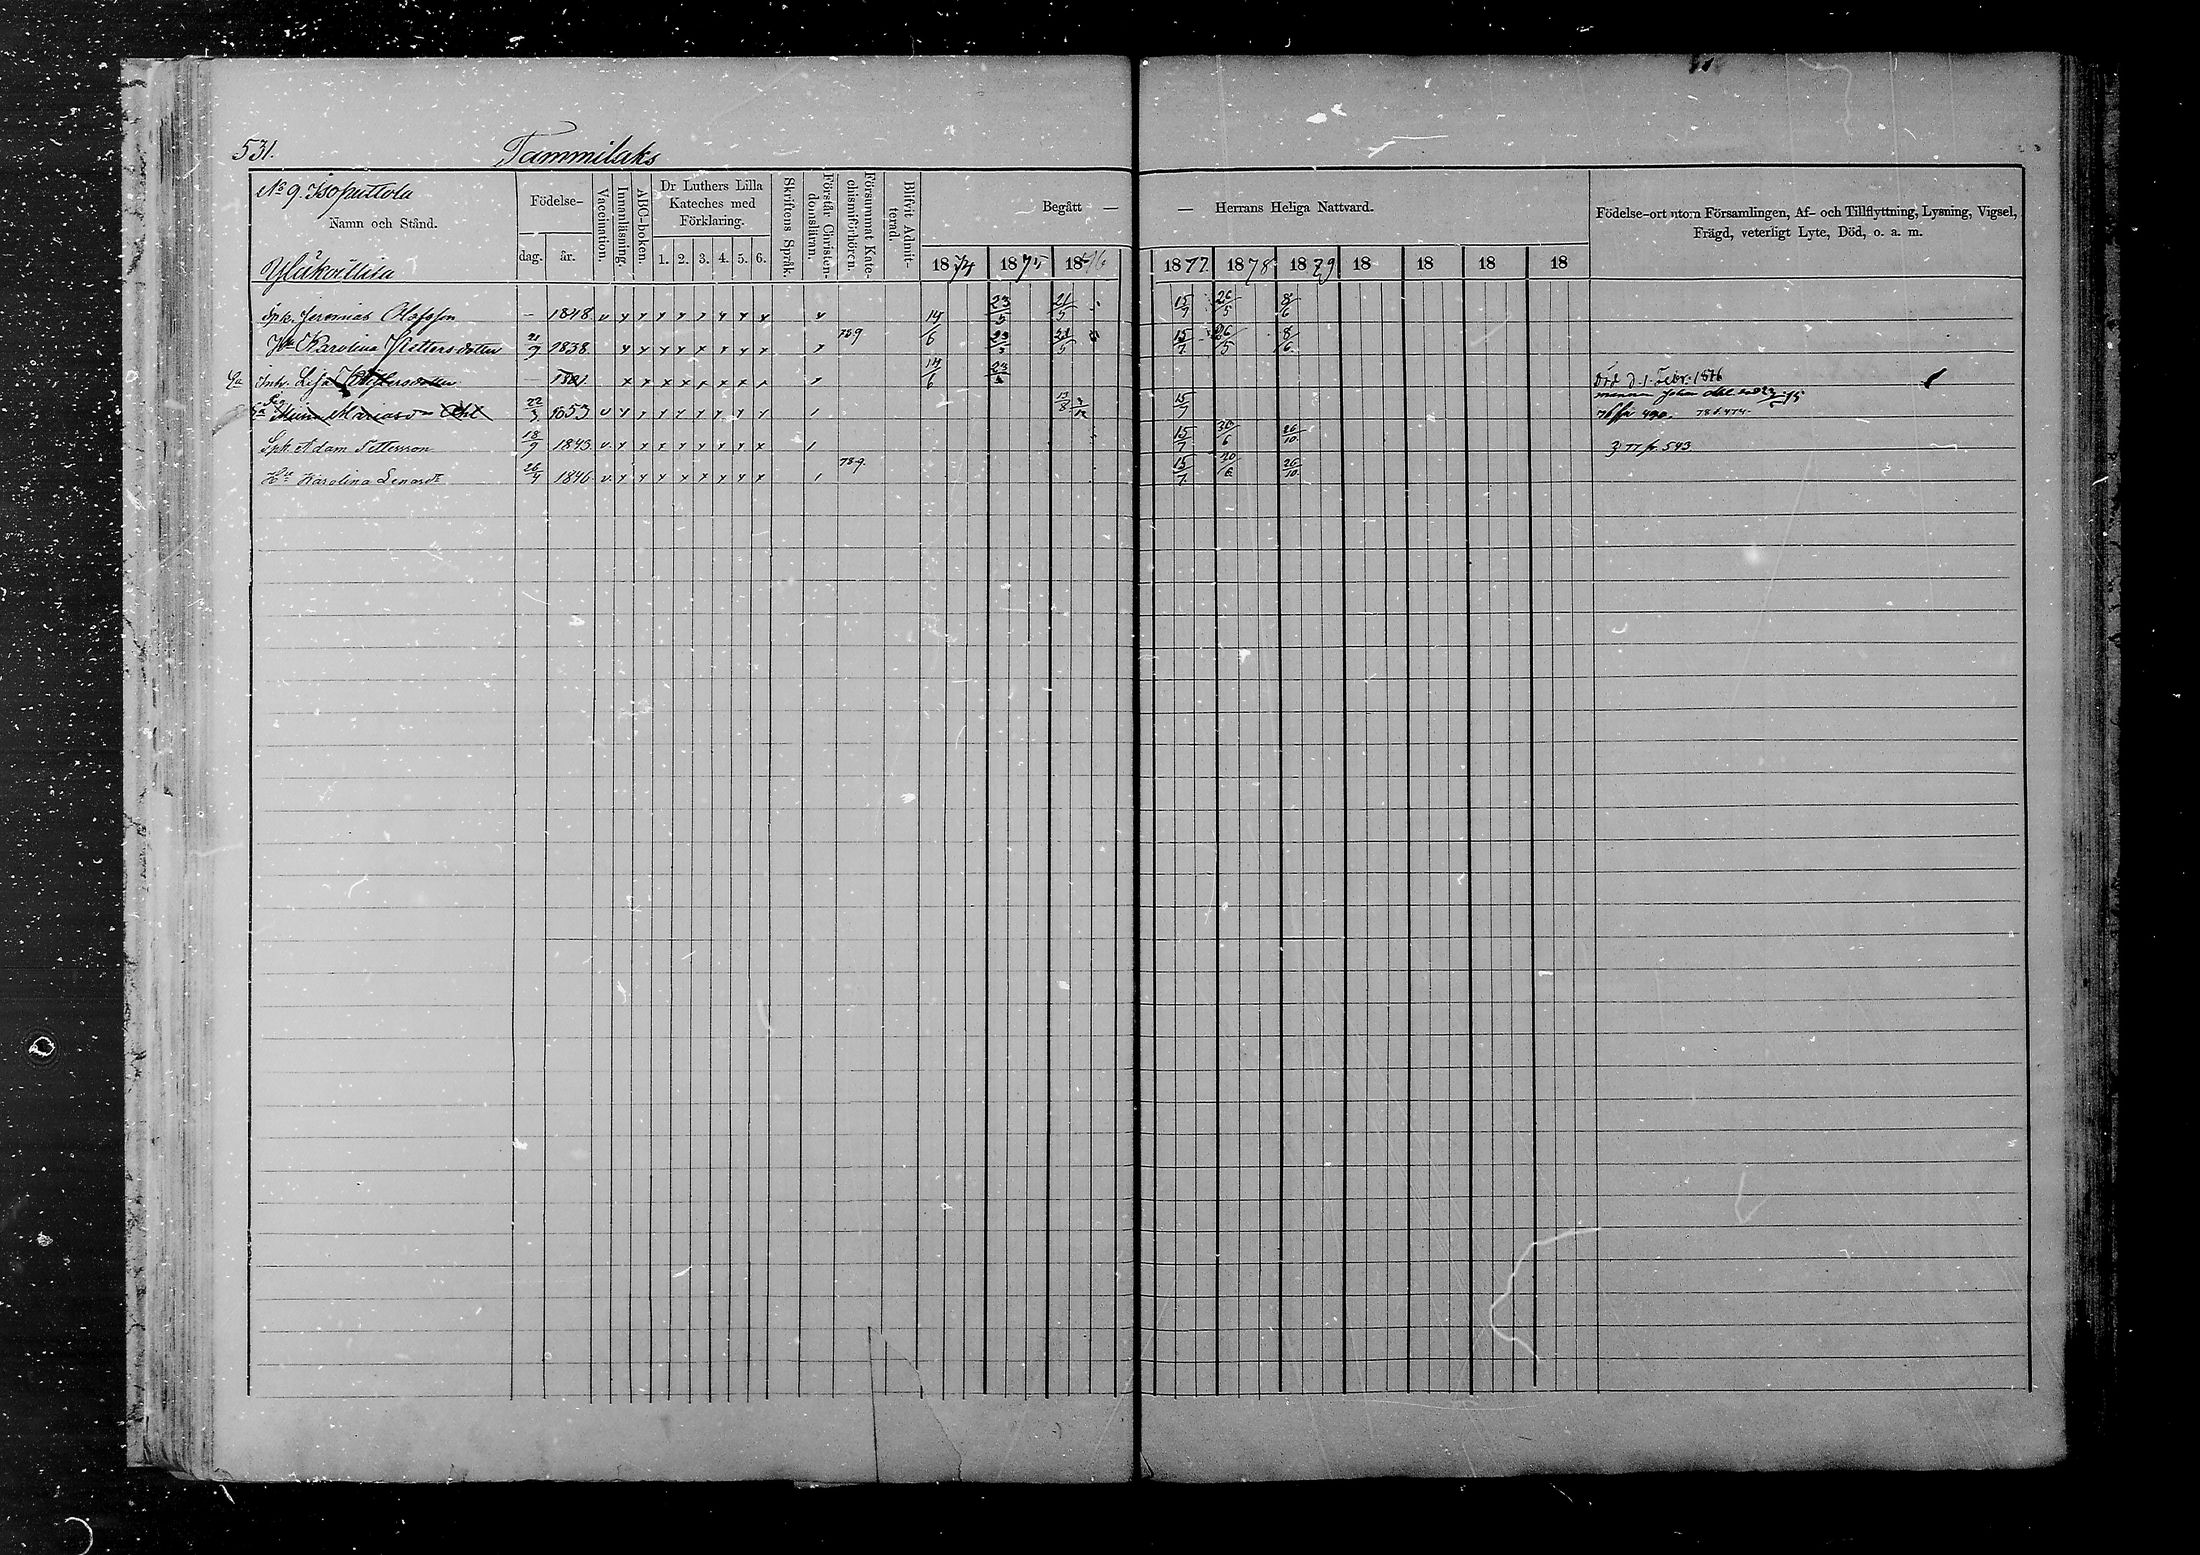 531.
Tammilaks
No 9. Isoputtola
Namn och Stånd.
Födelse-
dag.
år.
Vaccination.
Innanläsning.
ABC-boken.
Dr Luthers Lilla
Kateches med
Förklaring.
1. 2. 3. 4. 5. 6.
Skriftens Språk.
Förstår Christen-
domsläran.
Försummat Kate-
chismiförhören.
Blifvit Admit-
terad.
Begått — — Herrans Heliga Nattvard.
1874 1875 1876 1877 1878 1879 18 18 18 18
Födelse-ort utom Församlingen, Af- och Tillflyttning, Lysning, Vigsel,
Frägd, veterligt Lyte, Död, o. a. m.
Spk. Jeremias Olofsson — 1848 v x x x x x x x x x 14/6 23/5 21/5 15/7 26/5 8/6
Hu Karolina Pettersdotter 21/9 1838 x x x x x x x x x 789 23/5 21/5 15/7 26/5 8/6
Enk. Lisa — x x x x x x x x 14/6 23/5 Död d. 1. Febr. 1876
22/3 1853 v x x x x x x x x 15/7 78 f. 474.
Spk Adam Pettersson 18/9 1843 v x x x x x x x x 15/7 30/6 26/10 77 fr 543.
Hu Karolina Lenardtr 26/4 1846 v. x x x x x x x x 789. 15/7 26/10